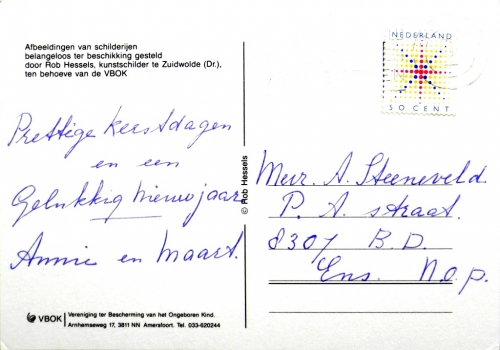 Afbeeldingen van schilderijen
belangeloos ter beschikking gesteld
door Rob Hessels, kunstschilder te Zuidwolde (Dr.),
ten behoeve van de VBOK
Prettige kerstdagen
en een
Gelukkig nieuwjaar
Annie en Maart.
VBOK
Vereniging ter Bescherming van het Ongeboren Kind.
Arnhemseweg 17, 3811 NN Amersfoort. Tel. 033-620244
© Rob Hessels
NEDERLAND
50 CENT
Mevr. A. Steeneveld.
P. A. straat.
8307 B.D.
Ens. N.o.p.